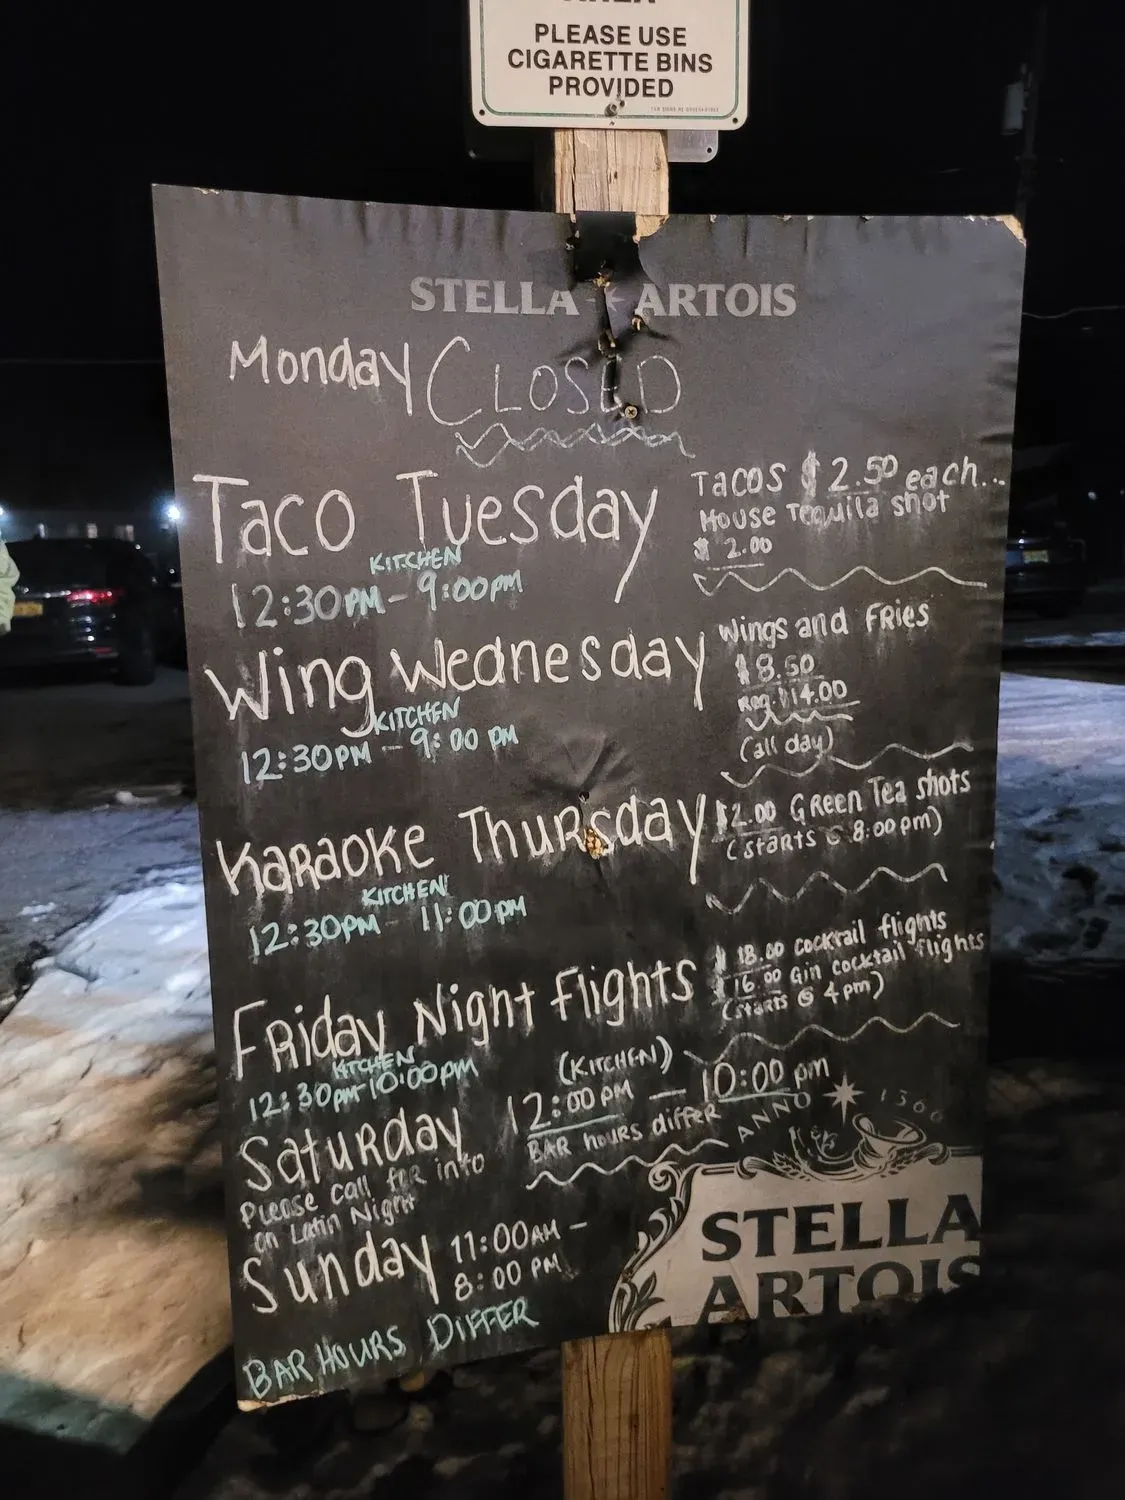 PLEASE USE
CIGARETTE BINS
PROVIDED
STELLA ARTOIS
Monday CLOSED
Taco Tuesday
KITCHEN
12:30PM - 9:00PM
TACOS $2.50 each...
House Tequila shot
$2.00
Wing Wednesday
KITCHEN
12:30PM - 9:00 PM
Wings and FRies
$8.50
Reg. $14.00
(all day)
KARAOKE Thursday
KITCHEN
12:30PM - 11:00PM
$2.00 GReen Tea shots
(starts @ 8:00pm)
FRiday Night flights
KITCHEN
12:30PM 10:00PM
$18.00 cocktail flights
$16.00 Gin cocktail flights
(starts @ 4pm)
Saturday
(KITCHEN)
12:00PM — 10:00 pm
BAR hours differ
Please call for into
on Latin Night
Sunday 11:00AM -
8:00 PM
BAR HOURS DIFFER
ANNO 1366
STELLA
ARTOIS